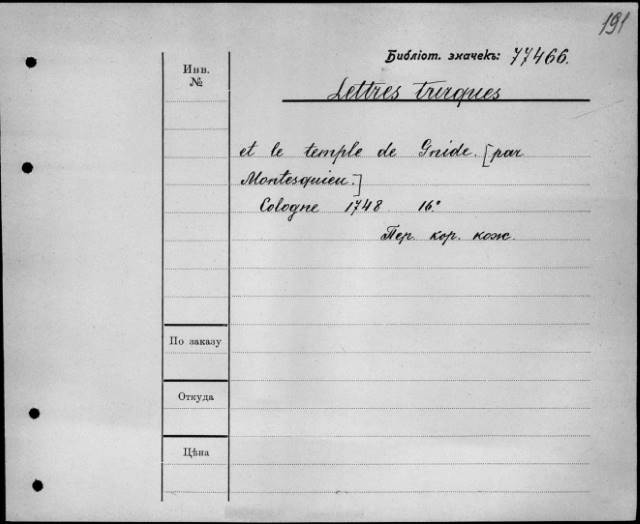 191
Библіот. значекъ: 77466.
Инв.
№
Lettres turques
et le temple de Gnide. [par
Montesquieu.]
Cologne 1748 16°
Пер. кор. кож.
По заказу
Откуда
Цѣна